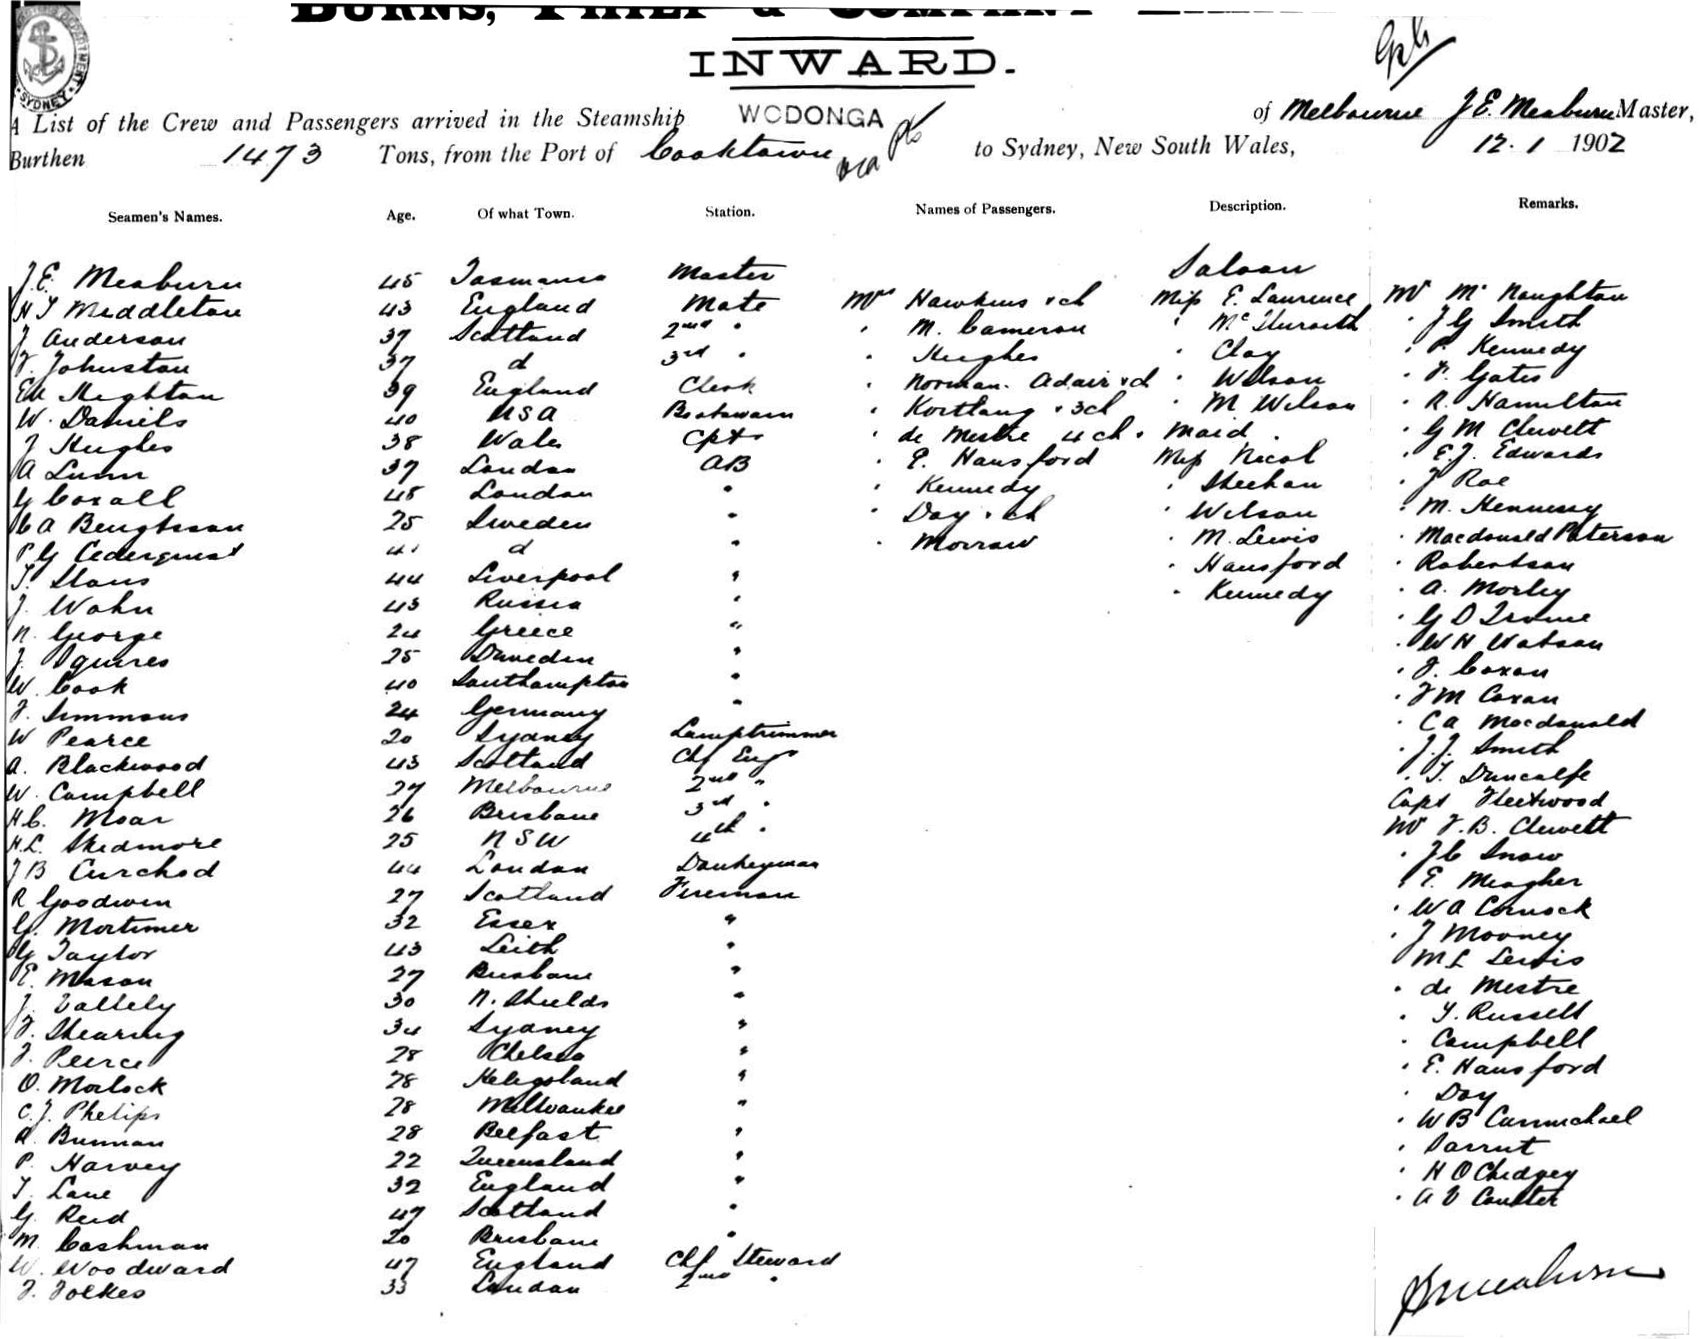 BURNS, PHILP & COMPANY
INWARD.
SYDNEY
A List of the Crew and Passengers arrived in the Steamship WODONGA of Melbourne J E. Meaburn Master,
Burthen 1473 Tons, from the Port of Cooktown via pts to Sydney, New South Wales, 12. 1 1902
Seamen's Names. Age. Of what Town. Station. Names of Passengers. Description. Remarks.
Saloon
J. E. Meaburn 45 Tasmania Master
H T Middleton 43 England Mate Mrs Hawkins & ch Miss E. Laurence Mr McNaughton
J Anderson 37 Scotland 2nd " " M. Cameron " " J G Smith
F. Johnston 37 d 3rd " " Hughes " Clay " P. Kennedy
E W Heighton 39 England Clerk " Norman. Adair & ch " Wilson " F. Gates
W. Daniels 40 USA Boatswain " Kortlang & 3 ch " M Wilson " R. Hamilton
J Hughes 38 Wales Cptr " de Mestre 4 ch & maid. " G M Clewett
A Lunn 37 London AB " E. Hansford Miss Nicol " E. J. Edwards
G Coxall 48 London " " Kennedy " Sheehan " J Roe
C A Bengtsson 25 Sweden " " Day & ch " Wilson " M. Hennessy
P G Cederquist 41 d " " Morrow " M. Lewis " Macdonald Paterson
44 Liverpool " " Hansford " Robertson
J. Wahn 43 Russia " " Kennedy " A. Morley
N. George 24 Greece " " G D Irvine
J. Squires 25 Dunedin " " W H Watson
W. Cook 40 Southampton " " J. Coxon
F. Simmons 24 Germany " " F M Coxon
W Pearce 20 Sydney Lamptrimmer " C A Macdonald
A. Blackwood 43 Scotland Chf Engr " J. J. Smith
W. Campbell 27 Melbourne 2nd " " T. Duncalfe
H. C. Moar 26 Brisbane 3rd " Capt Fleetwood
H. L. Skidmore 25 NSW 4th " Mr F. B. Clewett
J B Curchod 44 London Donkeyman " J C Snow
R Goodwin 27 Scotland Fireman " E. Meagher
G. Mortimer 32 Essex " " W A Cornock
G Taylor 43 Leith " " J Mooney
E. Mason 27 Brisbane " " M L Lewis
J. Vallely 30 N. Shields " " de Mestre
F. Shearing 34 Sydney " " Y. Russell
J. Peirce 28 Chelsea " " Campbell
O. Morlock 28 Heligoland " " E. Hansford
C. J. Phelips 28 Milwaukee " " Day
A. Brennan 28 Belfast " " W B Carmichael
P. Harvey 22 Queensland "
T. Lane 32 England " " H O Chidgey
G. Reid 47 Scotland " " A V Coulter
M. Cashman 20 Brisbane "
W. Woodward 47 England Chf Steward
J. Folkes 33 London 2nd "
J E Meaburn